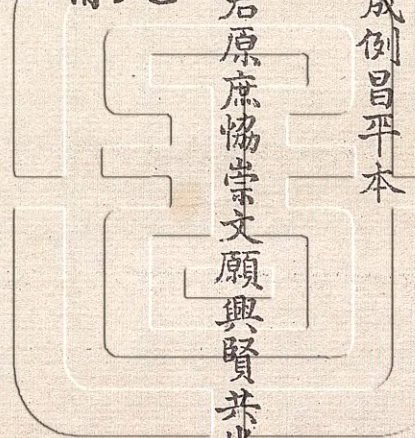 成例昌平本
原庶恊崇文願興賢共